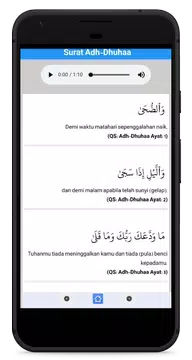 Surat Adh-Dhuhaa
0:00 / 1:10
وَالضُّحٰىۙ
Demi waktu matahari sepenggalahan naik.
(QS: Adh-Dhuhaa Ayat: 1)
وَالَّيْلِ اِذَا سَجٰىۙ
dan demi malam apabila telah sunyi (gelap).
(QS: Adh-Dhuhaa Ayat: 2)
مَا وَدَّعَكَ رَبُّكَ وَمَا قَلٰىۗ
Tuhanmu tiada meninggalkan kamu dan tiada (pula) benci
kepadamu.
(QS: Adh-Dhuhaa Ayat: 3)